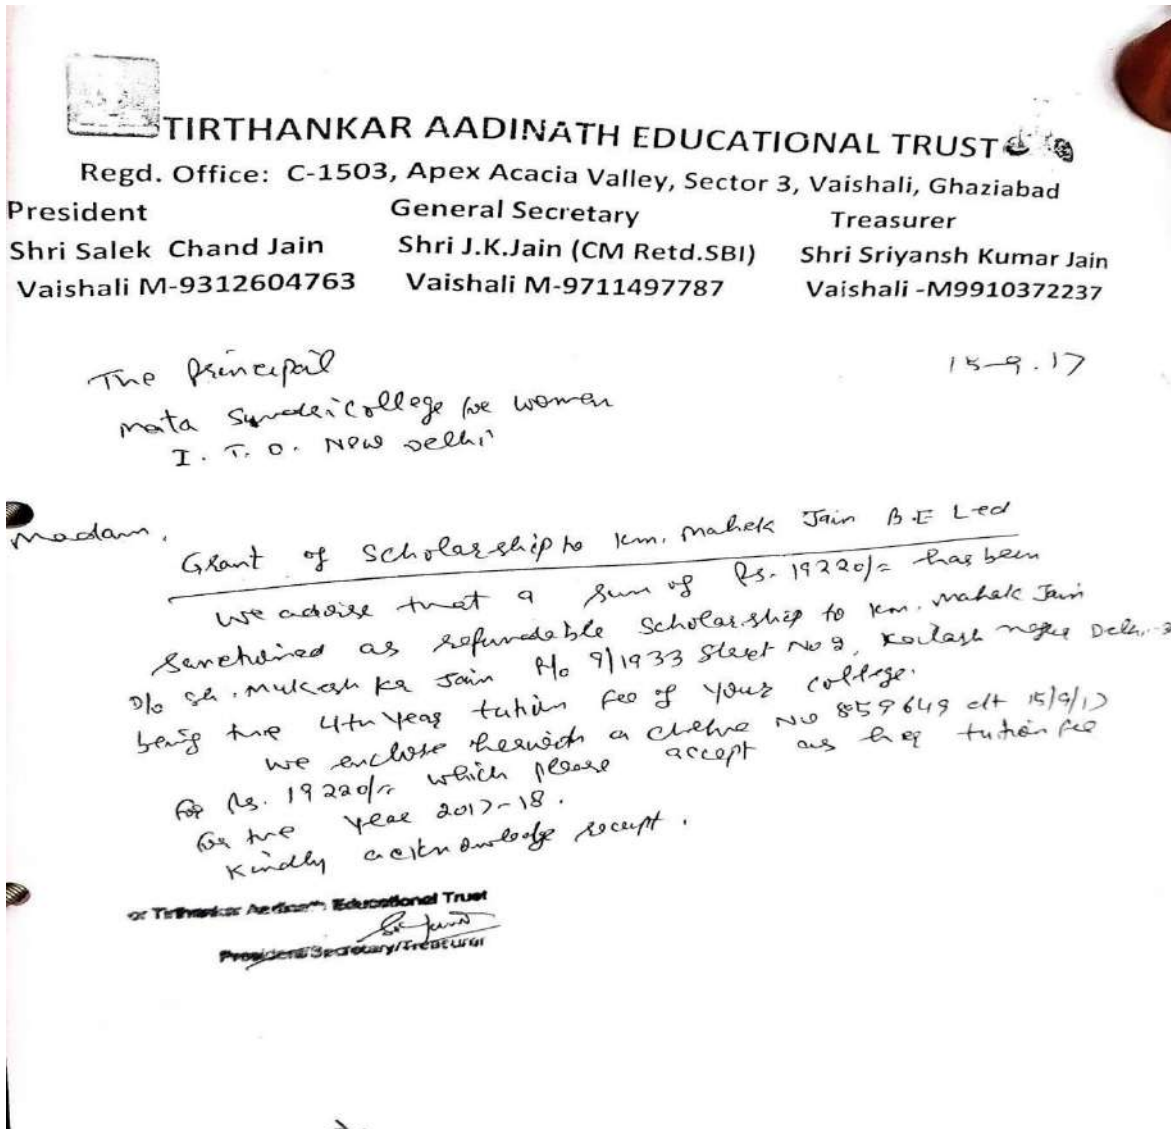 TIRTHANKAR AADINATH EDUCATIONAL TRUST
Regd. Office: C-1503, Apex Acacia Valley, Sector 3, Vaishali, Ghaziabad
President General Secretary Treasurer
Shri Salek Chand Jain Shri J.K.Jain (CM Retd.SBI) Shri Sriyansh Kumar Jain
Vaishali M-9312604763 Vaishali M-9711497787 Vaishali -M9910372237
The Principal 15-9.17
mata Sundri College for women
I. T. O. New Delhi
Madam,
Grant of Scholarship to Km. Mahek Jain B.E L.ed
We advise that a sum of Rs. 19220/= has been
sanctioned as refundable Scholarship to Km. Mahek Jain
D/o Sh. Mukesh Kr Jain R/o 9/1933 Street No 2, Kailash Nagar Delhi-
being the 4th year tution fee of your college.
We enclose herewith a cheque No 859649 dt 15/9/17
for Rs. 19220/= which please accept as her tution fee
for the year 2017-18.
Kindly acknowledge receipt.
or Tirthankar Aadinath Educational Trust
President/Secretary/Treasurer